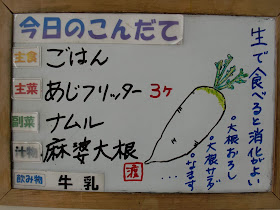 今日のこんだて
主食 ごはん
主菜 あじフリッター 3ヶ
副菜 ナムル
汁物 麻婆大根
飲み物 牛乳
生で食べると消化がよい
・大根おろし
・大根サラダ
・なます
...